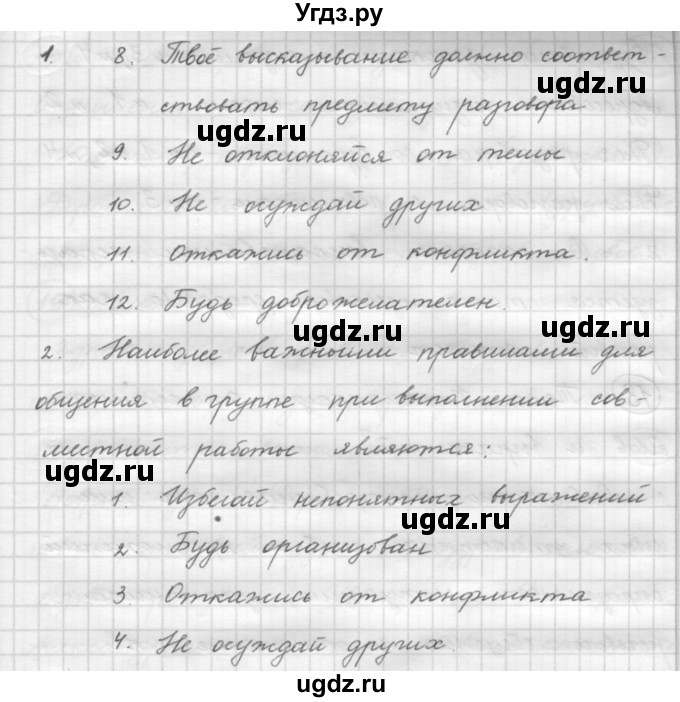 Угдз.ру
1. 8. Твоё высказывание должно соответ-
ствовать предмету разговора
9. Не отклоняйся от темы
10. Не осуждай других
11. Откажись от конфликта.
12. Будь доброжелателен.
2. Наиболее важными правилами для
общения в группе при выполнении сов-
местной работы являются:
1. Избегай непонятных выражений
2. Будь организован
3. Откажись от конфликта
4. Не осуждай других.
ugdz.ru
ugdz.ru
ugdz.ru
ugdz.ru
ugdz.ru
ugdz.ru
ugdz.ru
ugdz.ru